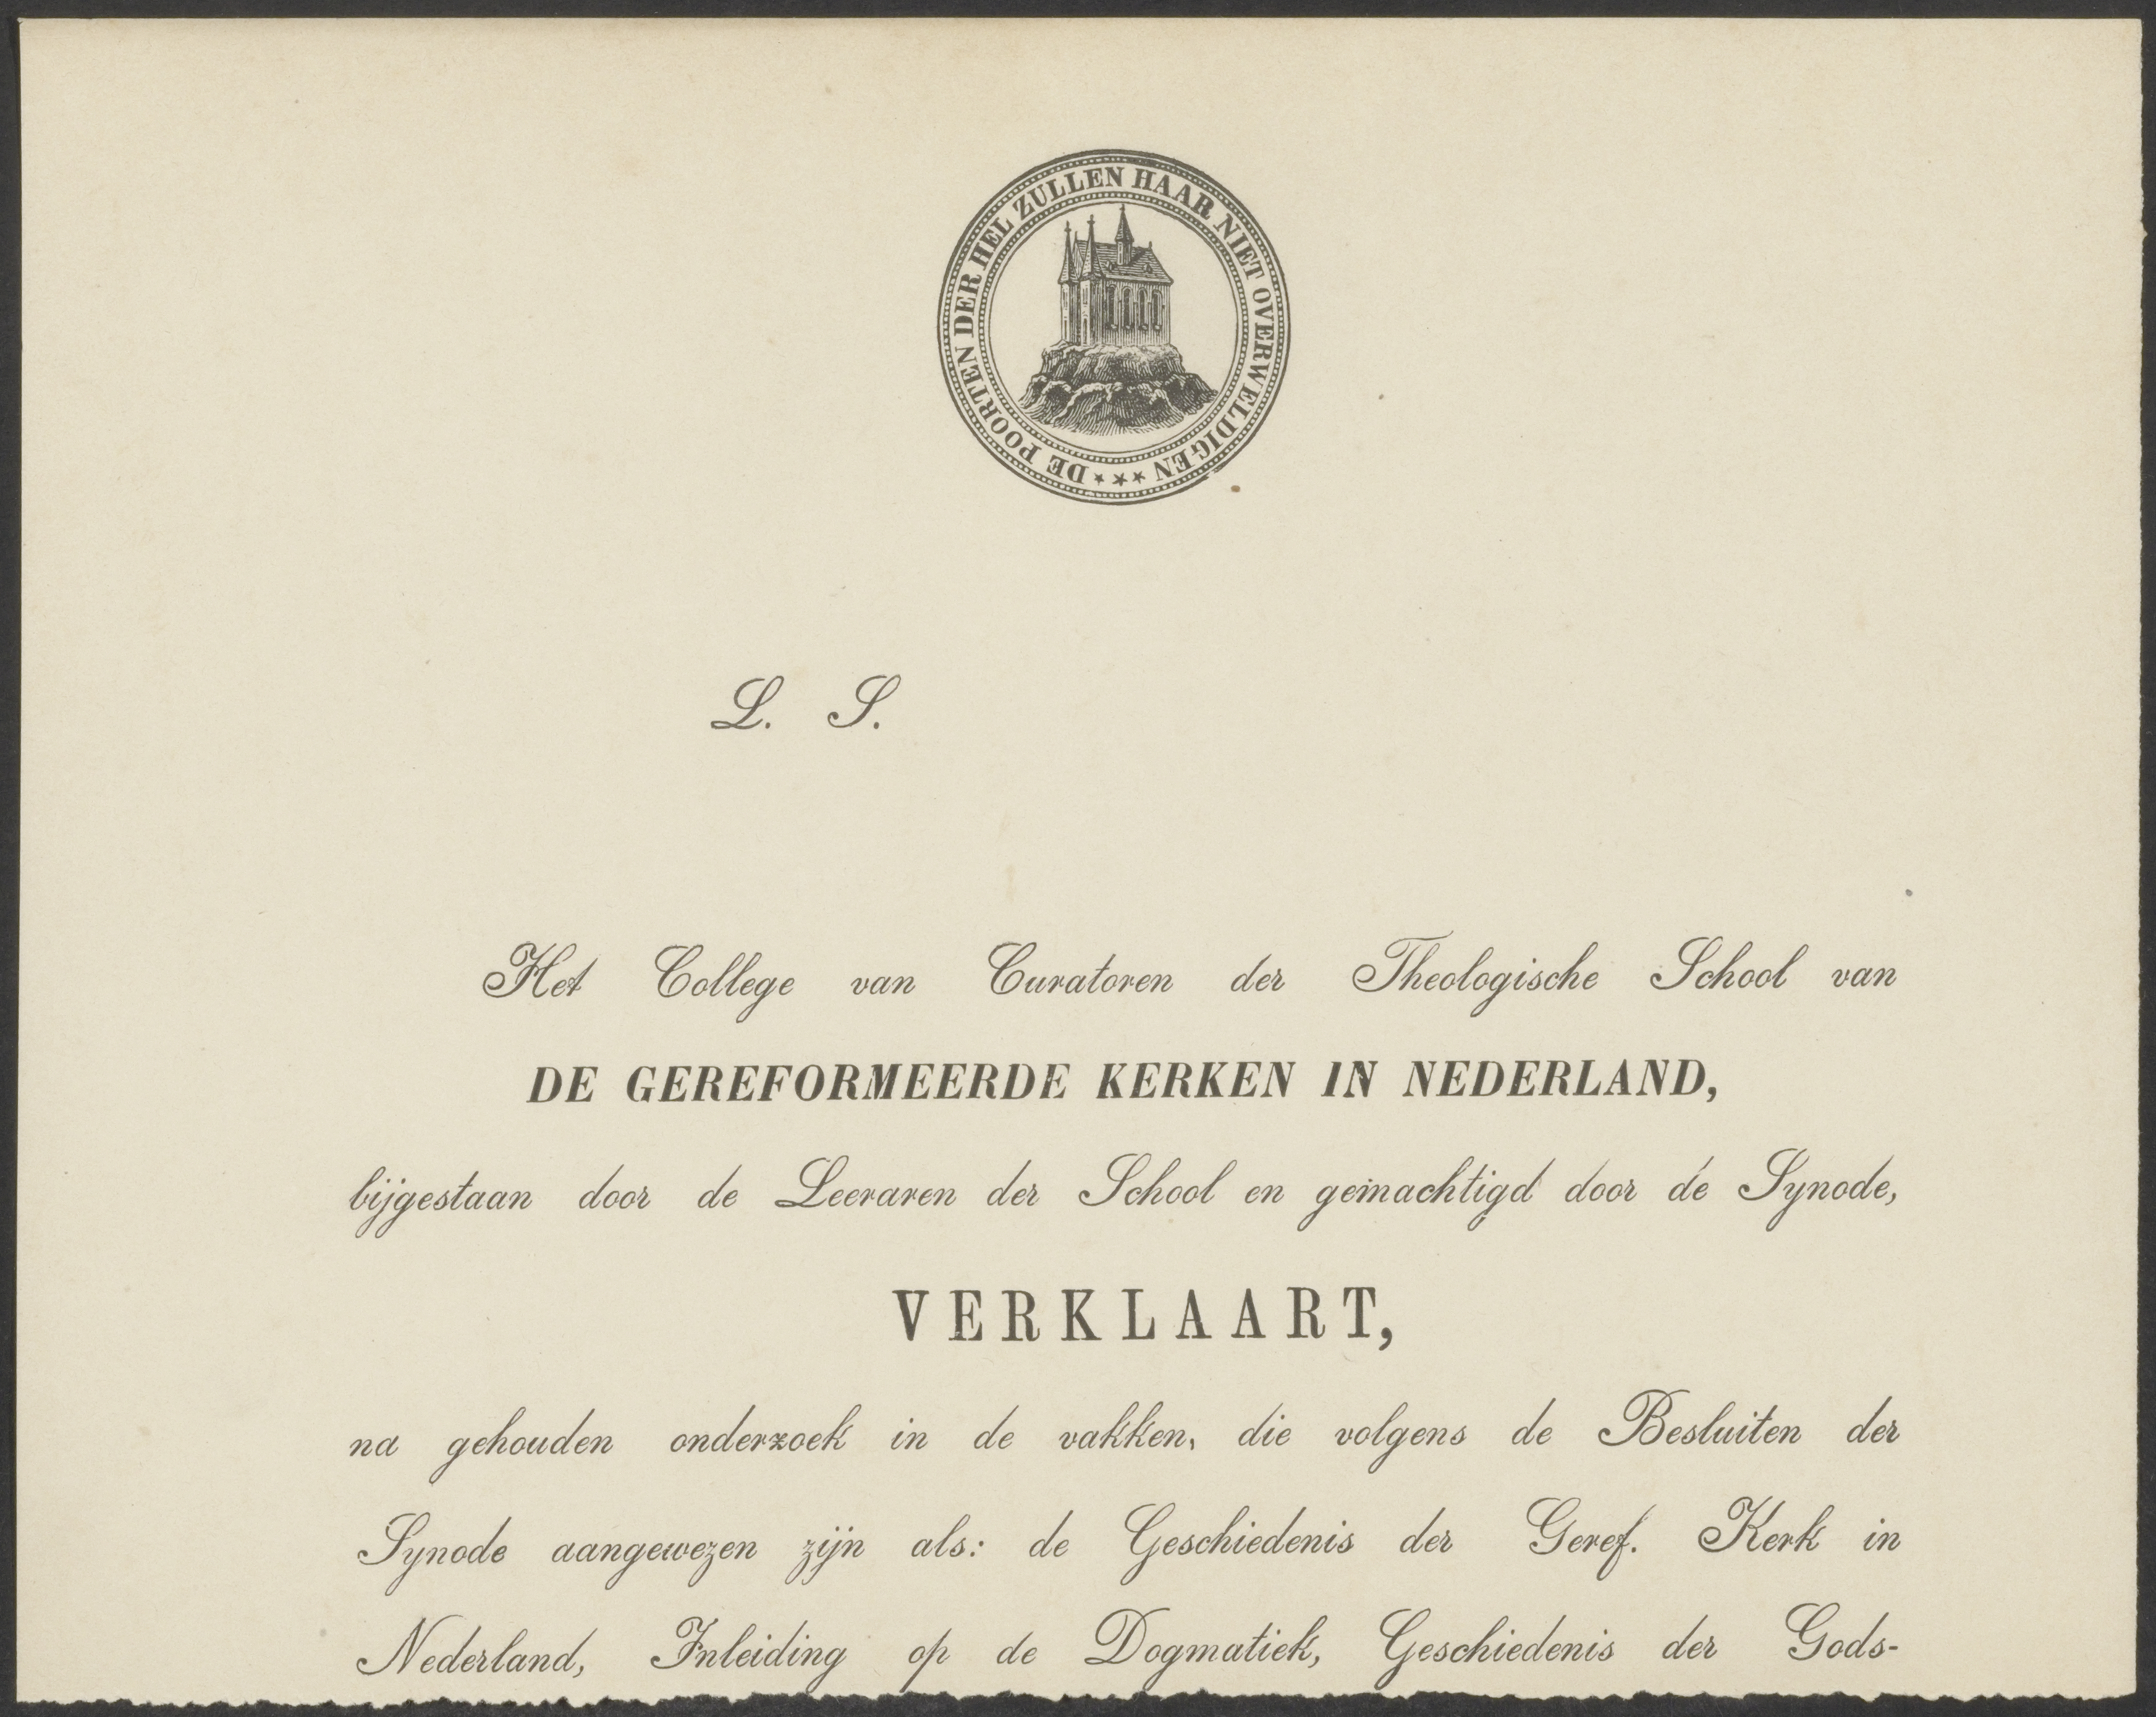 DE POORTEN DER HEL ZULLEN HAAR NIET OVERWELDIGEN ***
L. S.
Het College van Curatoren der Theologische School van
DE GEREFORMEERDE KERKEN IN NEDERLAND,
bijgestaan door de Leeraren der School en gemachtigd door de Synode,
VERKLAART,
na gehouden onderzoek in de vakken, die volgens de Besluiten der
Synode aangewezen zijn als: de Geschiedenis der Geref. Kerk in
Nederland, Inleiding op de Dogmatiek, Geschiedenis der Gods-